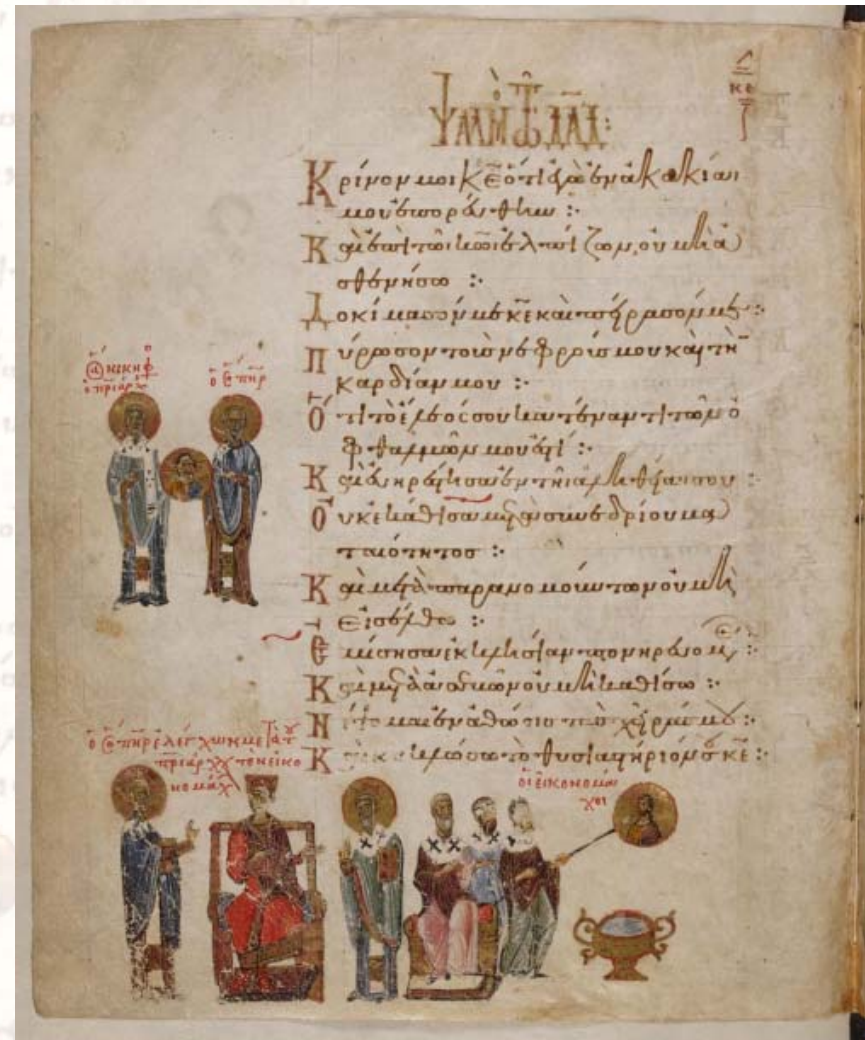 ΨΑΛΜ ΤΩ ΔΑΔ:
κε
Κρίνον μοι κ̅ε̅ ὅτι ἐγὼ ἐν ἀκακίαι
μου ἐπορεύθην :·
Καὶ ἐπὶ τῶι κ̅ω̅ι ἐλπίζων, οὐ μὴ ἀ
σθενήσω :·
Δοκίμασόν με κ̅ε̅ καὶ πείρασόν με :·
Πύρωσον τοὺς νεφρούς μου καὶ τὴν
καρδίαν μου :·
Ὅτι τὸ ἔλεός σου κατέναντι τῶν ὀ
φθαλμῶν μου ἐστί :·
Καὶ εὐηρέστησα ἐν τῆι ἀληθείαι σου :·
Οὐκ ἐκάθισα μετὰ συνεδρίου μα
ταιότητος :·
Καὶ μετὰ παρανομούντων οὐ μὴ
εἰσέλθω :·
Ἐμίσησα ἐκκλησίαν πονηρευομε :·
Καὶ μετὰ ἀσεβῶν οὐ μὴ καθίσω :·
Νίψομαι ἐν ἀθώοις τὰς χεῖράς μου :·
Καὶ κυκλώσω τὸ θυσιαστήριόν σου κ̅ε̅ :·
ὁ ἅ νικηφο
ὁ πριάρχ
ὁ ὅ πηρ
ὁ ὅ πηρ ἐλέγχων μετὰ τοῦ
πριάρχ τὸν εἰκο
νομάχ
οἱ εἰκονομά
χοι